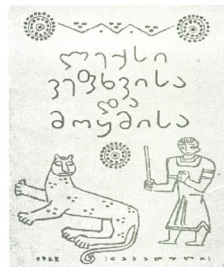 ლექსი
ვეფხვისა
და
მოყმისა